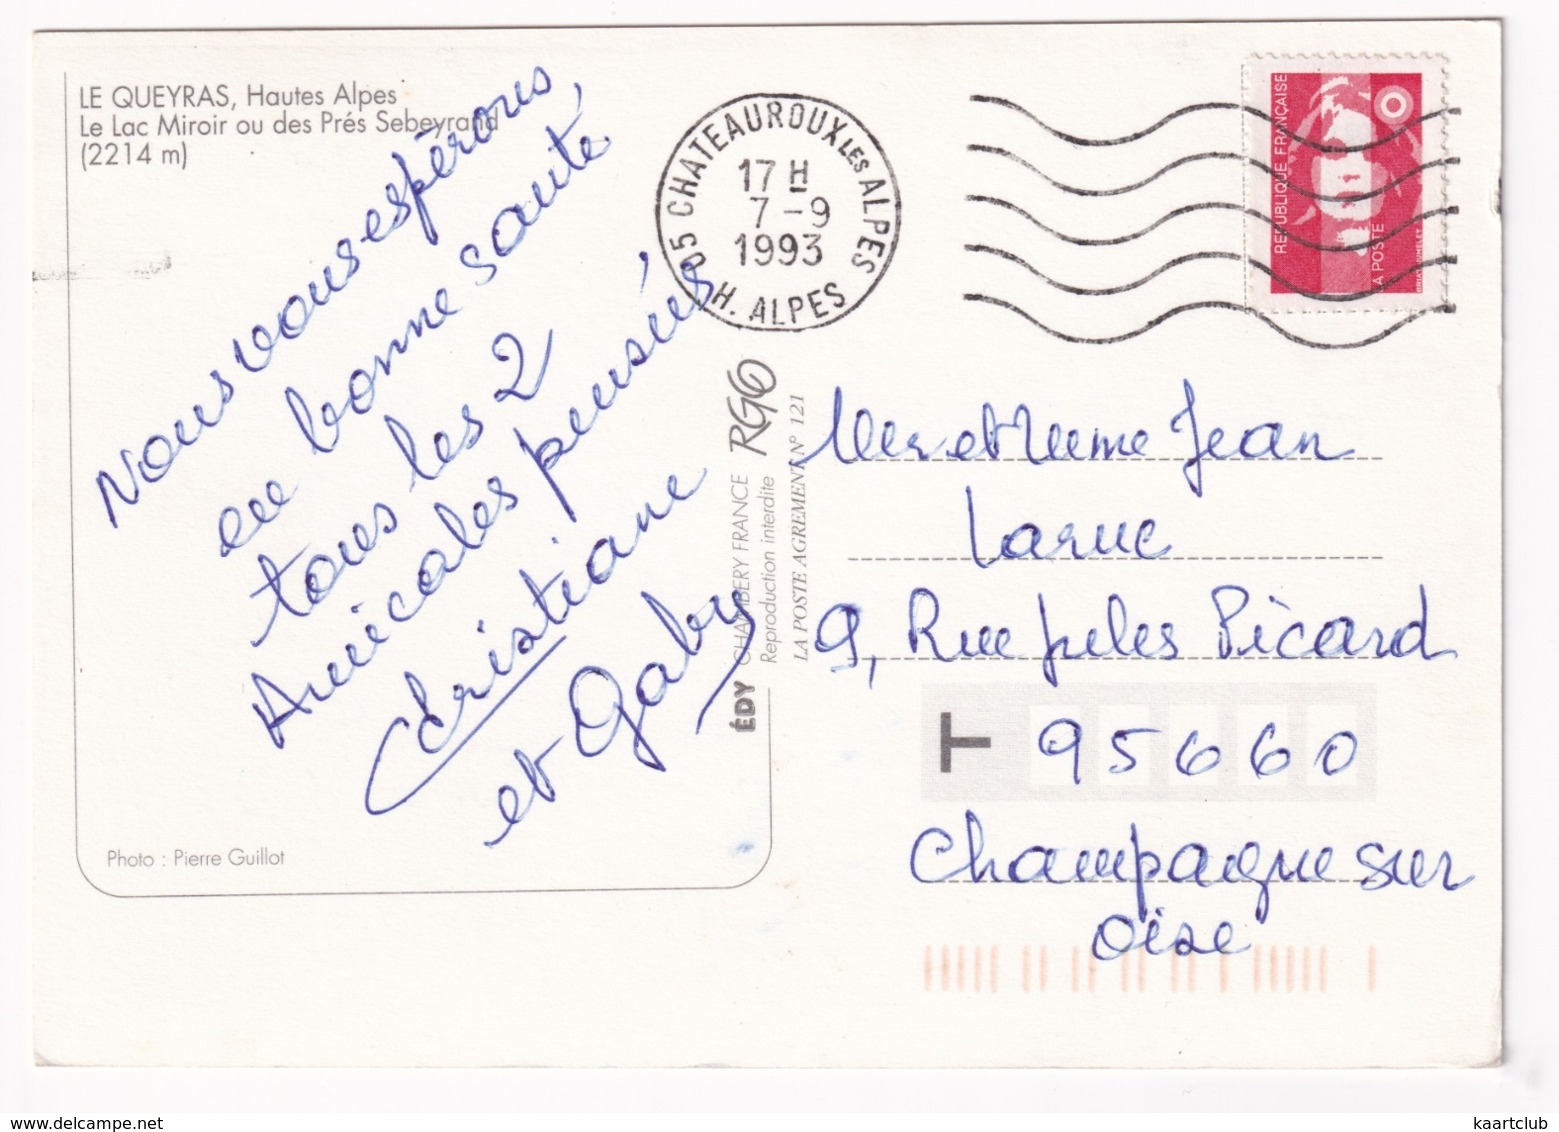 LE QUEYRAS, Hautes Alpes
Le Lac Miroir ou des Prés Sebeyrand
(2214 m)
Nous vous espérons,
en bonne santé
tous les 2
Amicales pensées
Christiane
et Gaby
Photo : Pierre Guillot
05 CHATEAUROUX LES ALPES
17 H
7 - 9
1993
H. ALPES
REPUBLIQUE FRANÇAISE
LA POSTE
ÉDY CHAMBERY FRANCE
Reproduction interdite
LA POSTE AGREMENT N° 121
Mer et Mme Jean
Laruc
9, Rue Jules Picard
T 95660
Champagne sur
Oise
kaartclub